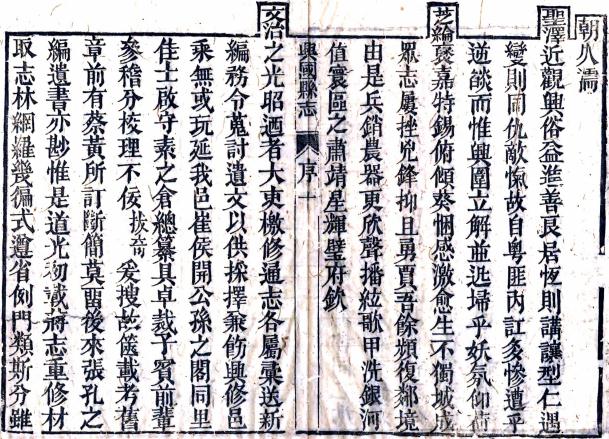 朝久濡
聖澤近觀興俗益進善良居恆則講讓型仁遇
變則同仇敵愾故自粵匪內訌多慘遭乎
逆燄而惟興圍立解並迅埽乎妖氛仰荷
芝綸褒嘉特錫俯傾葵悃感激愈生不獨城成
眾志屢挫兇鋒抑且勇賈吾餘頻復鄰境
由是兵銷農器更欣聲播絃歌甲洗銀河
值寰區之肅靖星輝壁府欽
興國縣志 序 十
文治之光昭迺者大吏檄修通志各屬彙送新
編務令蒐討遺文以供採擇爰飭興修邑
乘無或玩延我邑崔侯開公孫之閣同里
佳士啟守素之倉總纂具卓裁予質前輩
參稽分校理不佞 拔奇 爰搜故篋載考舊
章前有蔡黃所訂斷簡莫留後來張孔之
編遺書亦尠惟是道光初載蔣志重修材
取志林網羅幾徧式遵省例門類斯分雖